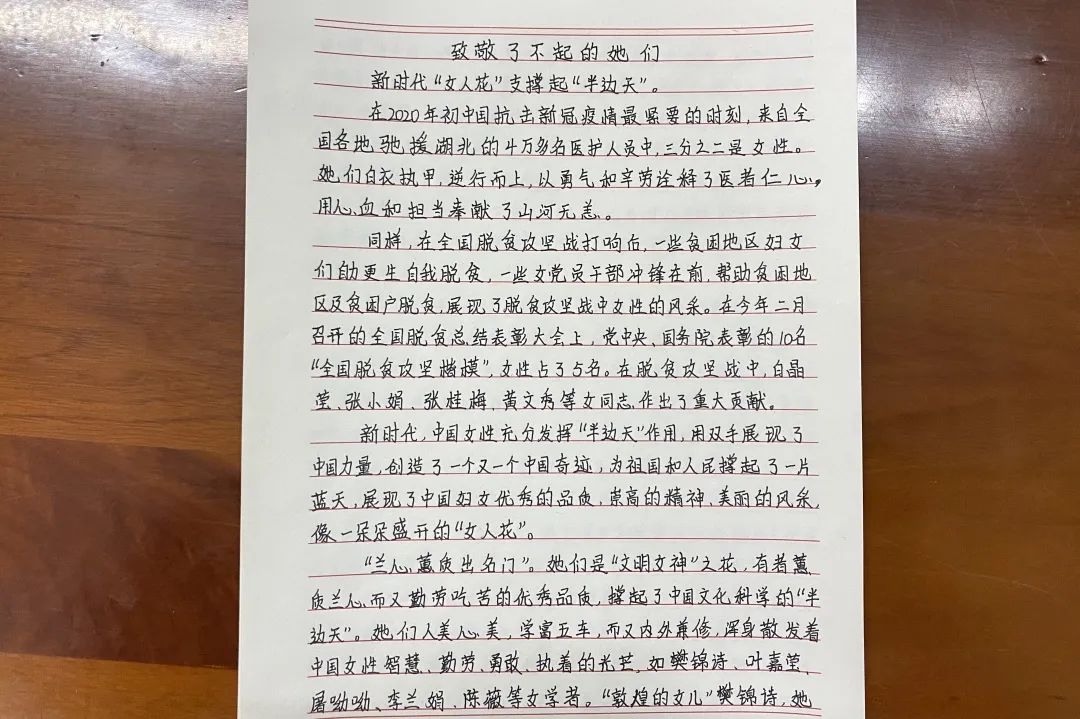 致敬了不起的她们
新时代“女人花”支撑起“半边天”。
在2020年初中国抗击新冠疫情最紧要的时刻,来自全
国各地驰援湖北的4万多名医护人员中,三分之二是女性。
她们白衣执甲,逆行而上,以勇气和辛劳诠释了医者仁心,
用心血和担当奉献了山河无恙。
同样,在全国脱贫攻坚战打响后,一些贫困地区妇女
们自力更生自我脱贫,一些女党员干部冲锋在前,帮助贫困地
区及贫困户脱贫,展现了脱贫攻坚战中女性的风采。在今年二月
召开的全国脱贫总结表彰大会上,党中央、国务院表彰的10名
“全国脱贫攻坚楷模”,女性占了5名。在脱贫攻坚战中,白晶
莹、张小娟、张桂梅、黄文秀等女同志作出了重大贡献。
新时代,中国女性充分发挥“半边天”作用,用双手展现了
中国力量,创造了一个又一个中国奇迹,为祖国和人民撑起了一片
蓝天,展现了中国妇女优秀的品质,崇高的精神、美丽的风采,
像一朵朵盛开的“女人花”。
“兰心蕙质出名门”。她们是“文明女神”之花,有着蕙
质兰心而又勤劳吃苦的优秀品质,撑起了中国文化科学的“半
边天”。她们人美心美,学富五车,而又内外兼修,浑身散发着
中国女性智慧、勤劳、勇敢、执着的光芒,如樊锦诗、叶嘉莹、
屠呦呦、李兰娟、陈薇等女学者。“敦煌的女儿”樊锦诗,她